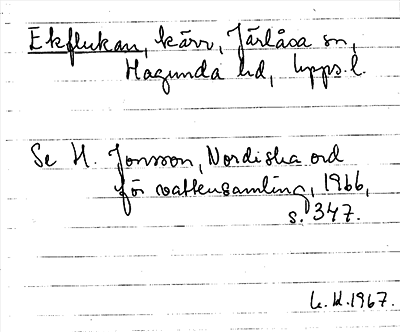 Ekflukan, kärr, Järlåsa sn,
Hagunda hd, Upps. l.
Se H. Jonsson, Nordiska ord
för vattensamling, 1966,
s. 347.
1967.